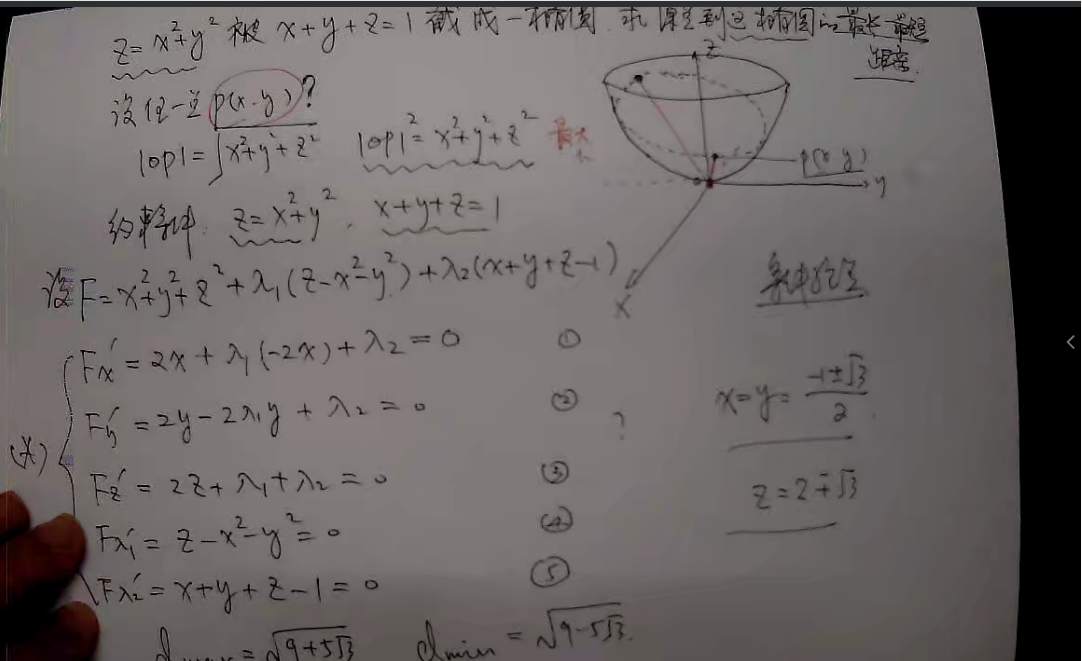 z=x²+y² 被 x+y+z=1 截成一椭圆. 求原点到这椭圆的最长最短
距离.
设任一点 p(x·y)?
|op|=√x²+y²+z² |op|²=x²+y²+z² 最大
小
约束条件. z=x²+y². x+y+z=1
设F=x²+y²+z²+λ₁(z-x²-y²)+λ₂(x+y+z-1)
(*)
Fx'=2x+λ₁(-2x)+λ₂=0 ①
Fy'=2y-2λ₁y+λ₂=0 ②
Fz'=2z+λ₁+λ₂=0 ③
Fλ₁'=z-x²-y²=0 ④
Fλ₂'=x+y+z-1=0 ⑤
dmax=√9+5√3 dmin=√9-5√3.
z
p(x·y)
y
x
?
x=y=-1±√3/2.
z=2∓√3